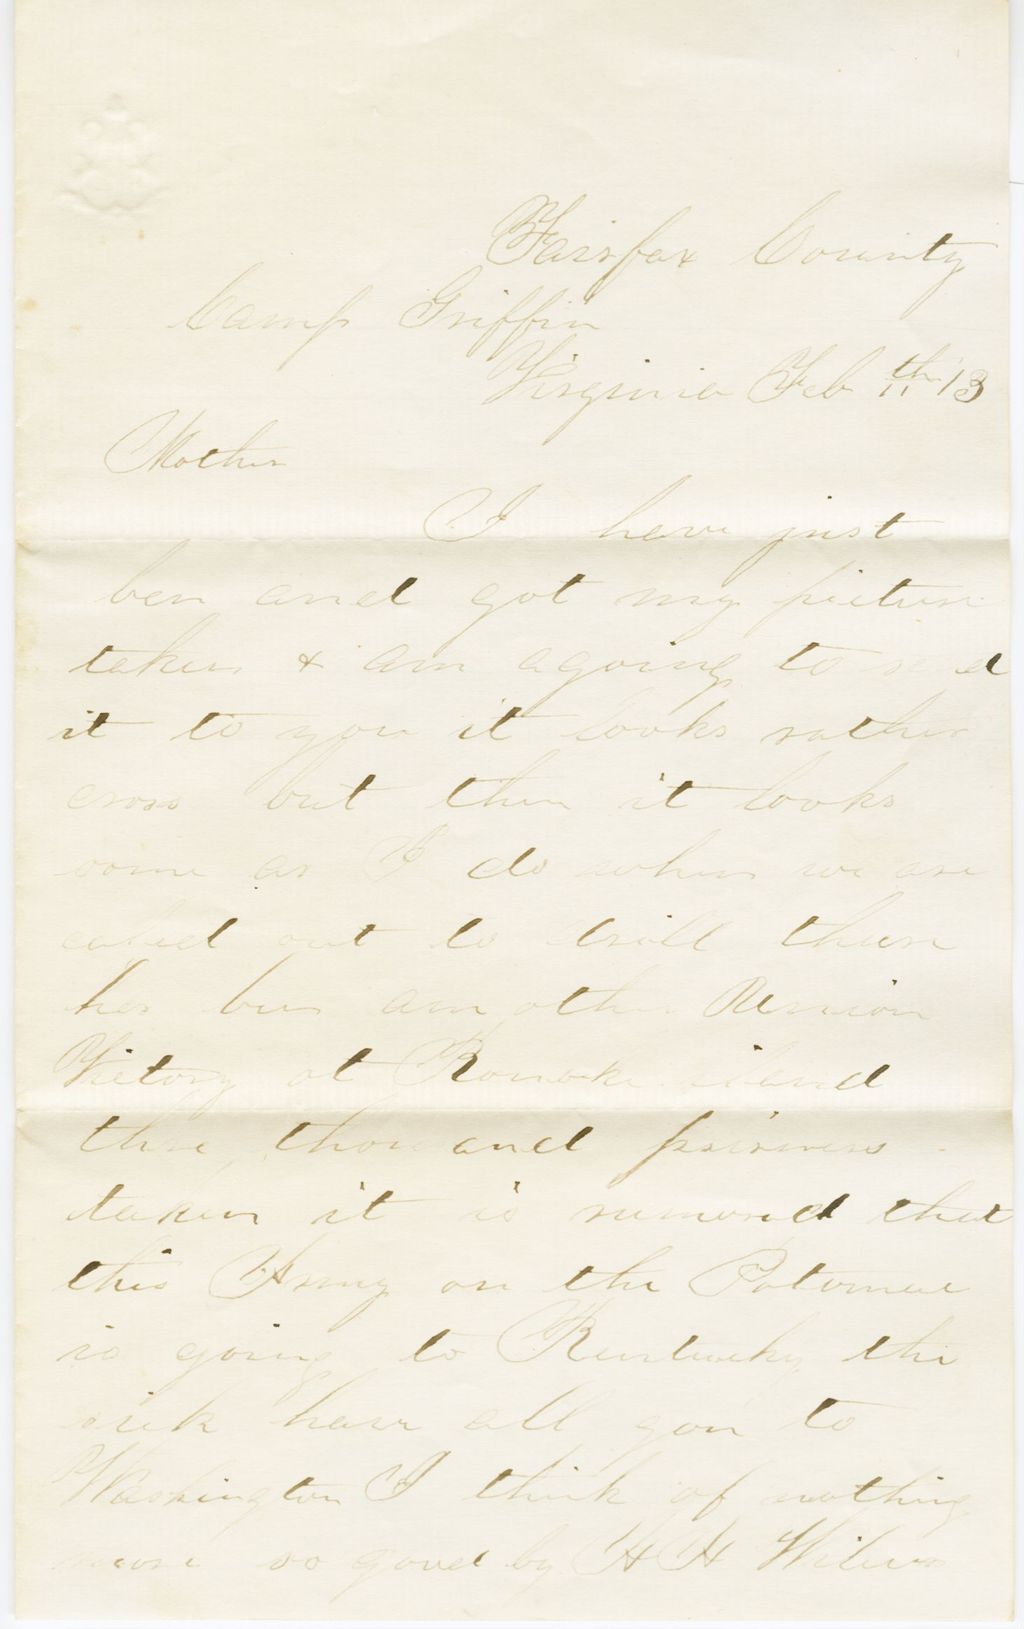 Fairfax County
Camp Griffin
Virginia Feb 11th 13
Mother
I have just
ben and got my picture
taken & am agoing to send
it to you it looks rather
cross but then it looks
some as I do when we are
caled out to drill there
has ben an other Union
Victory at Ronoke iland
three thousand prisiners
taken it is rumored that
this Army on the Potomac
is going to Kentucky the
sick have all gon to
Washington I think of nothing
more so good by H H Wilder